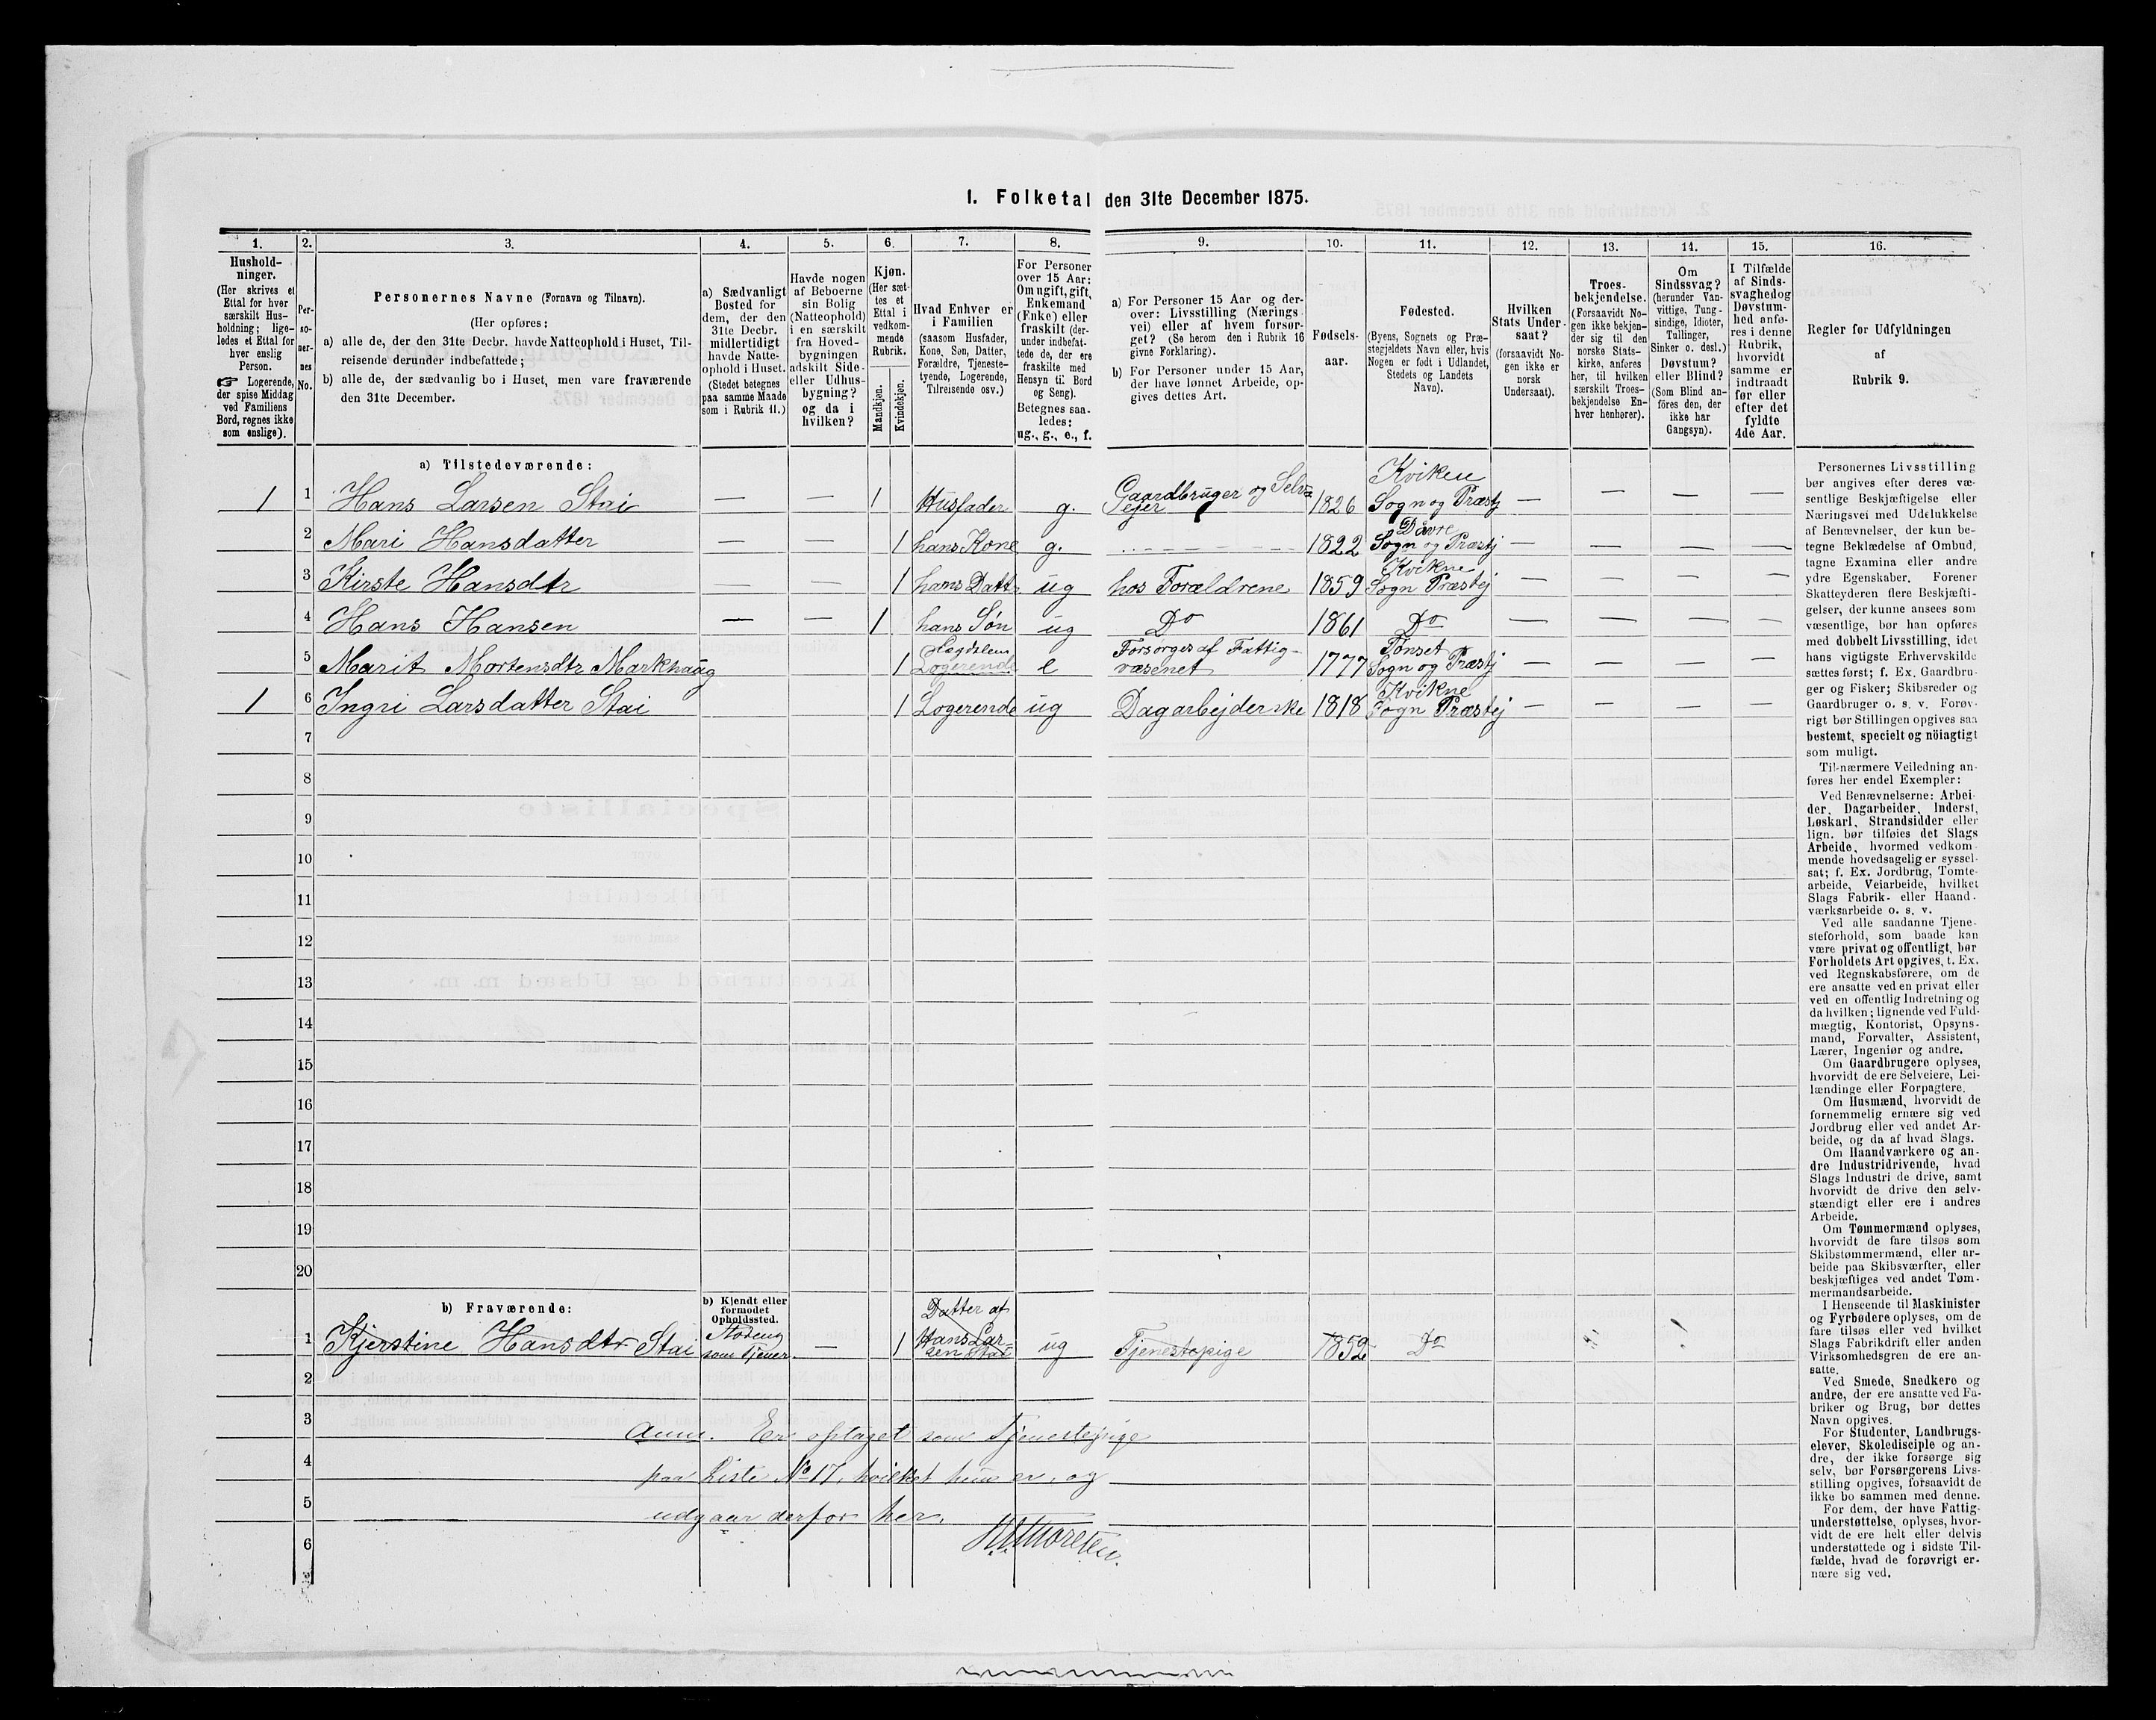 1. Folketal den 31te December 1875.
1. 2. 3. 4. 5. 6. 7. 8. 9. 10. 11. 12. 13. 14. 15. 16.
Hushold-
ninger.
(Her skrives et
Ettal for hver
særskilt Hus-
holdning; lige-
ledes et Ettal for
hver enslig
Person.
☞ Logerende,
der spise Middag
ved Familiens
Bord, regnes ikke
som enslige).
Per-
so-
ner-
nes
No.
Personernes Navne (Fornavn og Tilnavn).
(Her opføres:
a) alle de, der den 31te Decbr. havde Natteophold i Huset, Til-
reisende derunder indbefattede;
b) alle de, der sædvanlig bo i Huset, men vare fraværende
den 31te December.
a) Sædvanligt
Bosted for
dem, der den
31te Decbr.
midlertidigt
havde Natte-
ophold i Huset.
(Stedet betegnes
paa samme Maade
som i Rubrik 11.)
Havde nogen
af Beboerne
sin Bolig
(Natteophold)
i en særskilt
fra Hoved-
bygningen
adskilt Side-
eller Udhus-
bygning?
og da i
hvilken?
Kjøn.
(Her sæt-
tes et
Ettal i
vedkom-
mende
Rubrik.
Mandkjøn.
Kvindekjøn.
Hvad Enhver er
i Familien
(saasom Husfader,
Kone, Søn, Datter,
Forældre, Tjeneste-
tyende, Logerende,
Tilreisende osv.)
For Personer
over 15 Aar:
Om ugift, gift,
Enkemand
(Enke) eller
fraskilt (der-
under indbefat-
tede de, der ere
fraskilte med
Hensyn til Bord
og Seng).
Betegnes saa-
ledes:
ug., g., e., f.
a) For Personer 15 Aar og der-
over: Livsstilling (Nærings-
vei) eller af hvem forsør-
get? (Se herom den i Rubrik 16
givne Forklaring).
b) For Personer under 15 Aar,
der have lønnet Arbeide, op-
gives dettes Art.
Fødsels-
aar.
Fødested.
(Byens, Sognets og Præ-
stegjeldets Navn eller, hvis
Nogen er født i Udlandet,
Stedets og Landets
Navn).
Hvilken
Stats Under-
saat?
(forsaavidt No-
gen ikke er
norsk
Undersaat).
Troes-
bekjendelse.
(Forsaavidt No-
gen ikke bekjen-
der sig til den
norske Stats-
kirke, anføres
her, til hvilken
særskilt Troes-
bekjendelse En-
hver henhører).
Om
Sindssvag?
(herunder Van-
vittige, Tung-
sindige, Idioter,
Tullinger,
Sinker o. desl.)
Døvstum?
eller Blind?
(Som Blind an-
föres den, der
ikke har
Gangsyn).
I Tilfælde
af Sinds-
svaghed og
Døvstum-
hed anfø-
res i denne
Rubrik,
hvorvidt
samme er
indtraadt
før eller
efter det
fyldte
4de Aar.
Regler for Udfyldningen
af
Rubrik 9.
a) Tilstedeværende:
1 1 Hans Larsen Stai — — 1 Husfader g. Gaardbruger og Selv-Eejer 1826 Kviken Sogn og Præstj — — — —
2 Mari Hansdatter — — 1 hans Kone g. 1822 Dåvre Sogn og Præstj — — — —
3 Kirste Hansdtr — — 1 hans Dattr ug hos Forældrene 1859 Kvikne Sogn Præstej — — — —
4 Hans Hansen — — 1 hans Søn ug Do 1861 Do — — — —
5 Marit Mortensdtr Markhaug 1 Lægdslem Logerende e Forsørges af Fattig-væsenet 1777 Tønset Sogn og Præstj — — — —
1 6 Ingri Larsdatter Stai 1 Logerende ug Dagarbejderske 1818 Kvikne Sogn Præstej — — — —
7
8
9
10
11
12
13
14
15
16
17
18
19
20
b) Fraværende:
b) Kjendt eller
formodet
Opholdssted.
1 Kjerstine Hansdtr Stai som tjener — 1 Datter af Hans Larsen Stai ug Tjenestepige 1852 Do
2
3 Anm. Er optaget som Tjenestepige
4 paa Liste No 17, hvilket hun er, og
5 udgaar derfor her.
6
Personernes Livsstilling
bør angives efter deres væ-
sentlige Beskjæftigelse eller
Næringsvei med Udelukkelse
af Benævnelser, der kun be-
tegne Beklædelse af Ombud,
tagne Examina eller andre
ydre Egenskaber. Forener
Skatteyderen flere Beskjæfti-
gelser, der kunne ansees som
væsentlige, bør han opføres
med dobbelt Livsstilling, idet
hans vigtigste Erhvervskilde
sættes først; f. Ex. Gaardbru-
ger og Fisker; Skibsreder og
Gaardbruger o. s. v. Forøv-
rigt bør Stillingen opgives saa
bestemt, specielt og nöiagtigt
som muligt.
Til nærmere Veiledning an-
føres her endel Exempler:
Ved Benævnelserne: Arbei-
der, Dagarbeider, Inderst,
Løskarl, Strandsidder eller
lign. bør tilføies det Slags
Arbeide, hvormed vedkom-
mende hovedsagelig er syssel-
sat; f. Ex. Jordbrug, Tomte-
arbeide, Veiarbeide, hvilket
Slags Fabrik- eller Haand-
værksarbeide o. s. v.
Ved alle saadanne Tjene-
steforhold, som baade kan
være privat og offentligt, bør
Forholdets Art opgives, t. Ex.
ved Regnskabsførere, om de
ere ansatte ved en privat eller
ved en offentlig Indretning og
da hvilken; lignende ved Fuld-
mægtig, Kontorist, Opsyns-
mand, Forvalter, Assistent,
Lærer, Ingeniør og andre.
Om Gaardbrugere oplyses,
hvorvidt de ere Selveiere, Lei-
lændinge eller Forpagtere.
Om Husmænd, hvorvidt de
fornemmelig ernære sig ved
Jordbrug eller ved andet Ar-
beide, og da af hvad Slags.
Om Haandværkere og an-
dre Industridrivende, hvad
Slags Industri de drive, samt
hvorvidt de drive den selv-
stændigt eller ere i andres
Arbeide.
Om Tømmermænd oplyses,
hvorvidt de fare tilsøs som
Skibstømmermænd, eller ar-
beide paa Skibsværfter, eller
beskjæftiges ved andet Tøm-
mermandsarbeide.
I Henseende til Maskinister
og Fyrbødere oplyses, om de
fare tilsøs eller ved hvilket
Slags Fabrikdrift eller anden
Virksomhedsgren de ere an-
satte.
Ved Smede, Snedkere og
andre, der ere ansatte ved Fa-
briker og Brug, bør dettes
Navn opgives.
For Studenter, Landbrugs-
elever, Skoledisciple og an-
dre, der ikke forsørge sig
selv, bør Forsørgerens Livs-
stilling opgives, forsaavidt de
ikke bo sammen med denne.
For dem, der have Fattig-
understøttelse, oplyses, hvor-
vidt de ere helt eller delvis
understøttede og i sidste Til-
fælde, hvad de forøvrigt er-
nære sig ved.